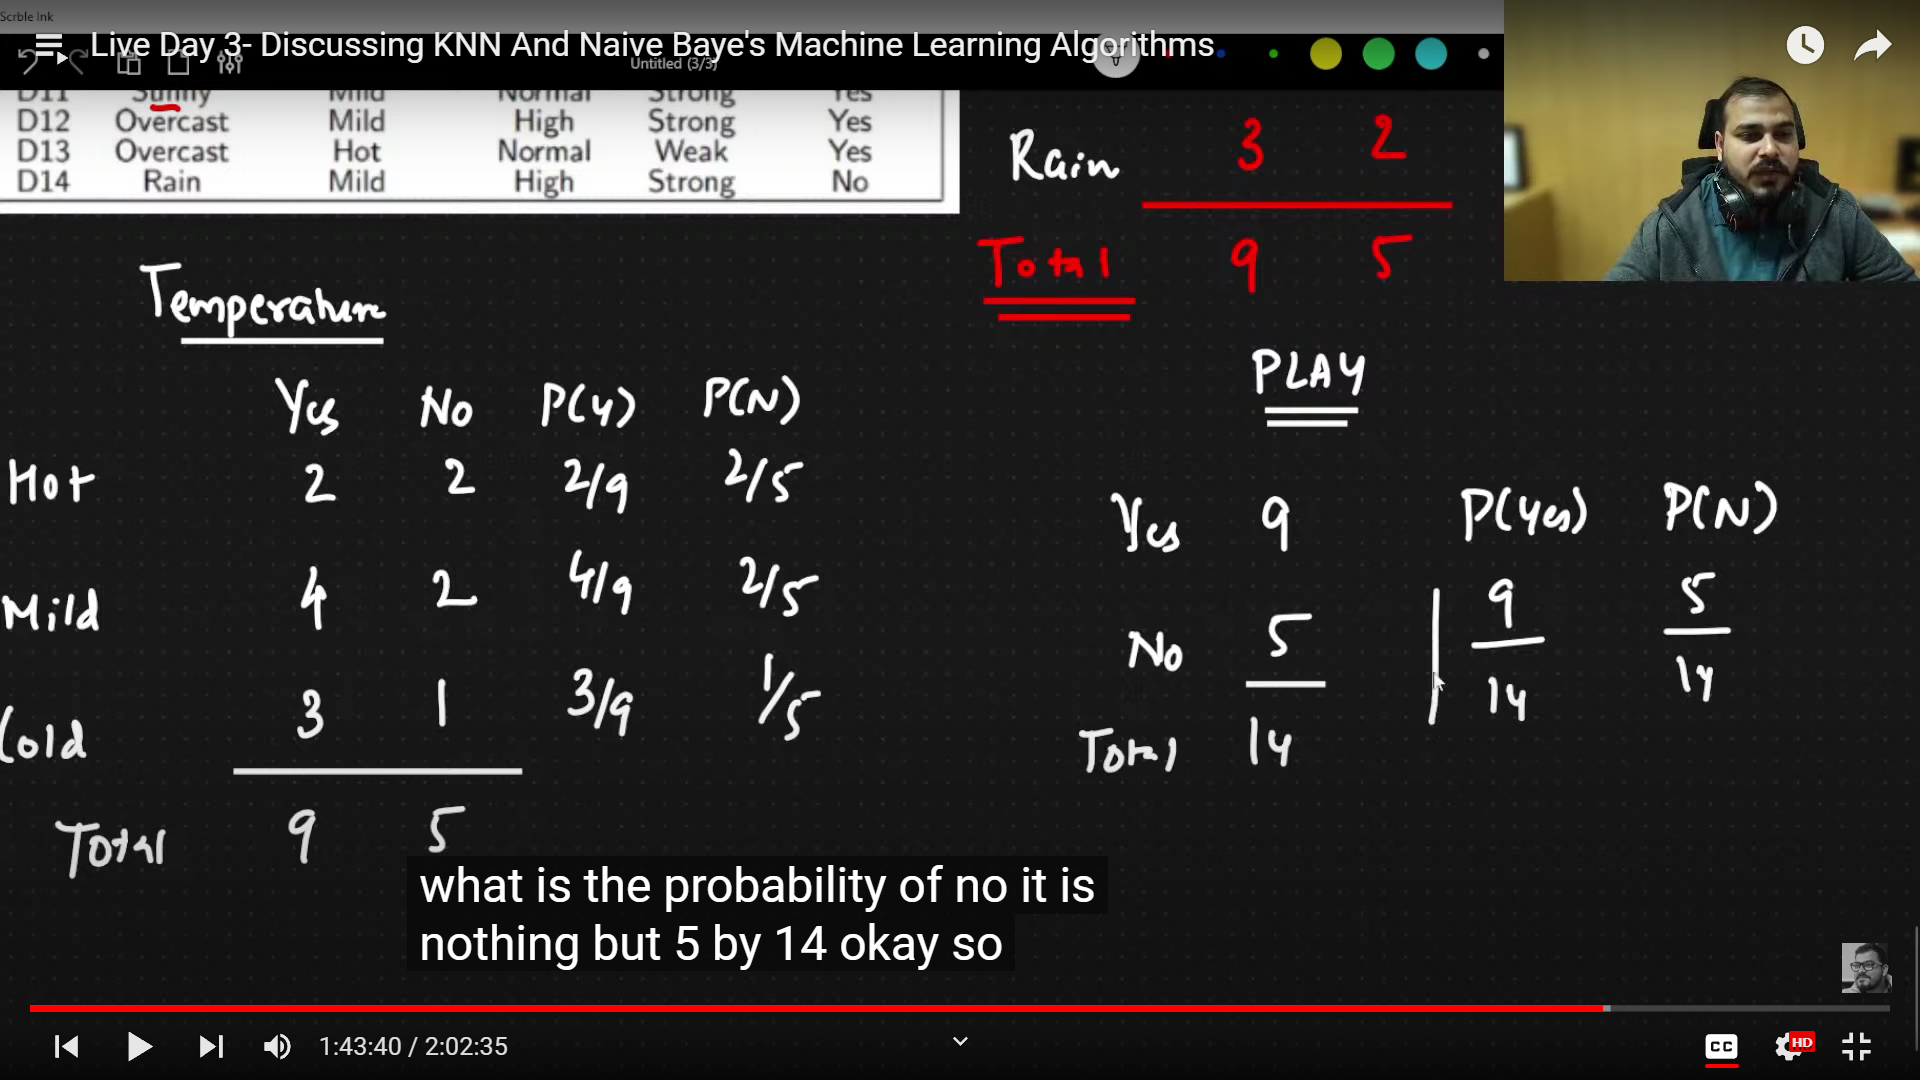 Scrble Ink
Live Day 3- Discussing KNN And Naive Baye's Machine Learning Algorithms
Untitled (3/3)
D11 Sunny Mild Normal Strong Yes
D12 Overcast Mild High Strong Yes
D13 Overcast Hot Normal Weak Yes
D14 Rain Mild High Strong No
Rain 3 2
Total 9 5
Temperature
Yes No P(Y) P(N)
Hot 2 2 2/9 2/5
Mild 4 2 4/9 2/5
Cold 3 1 3/9 1/5
Total 9 5
PLAY
P(Yes) P(N)
Yes 9
9/14 5/14
No 5
Total 14
what is the probability of no it is
nothing but 5 by 14 okay so
1:43:40 / 2:02:35
CC HD